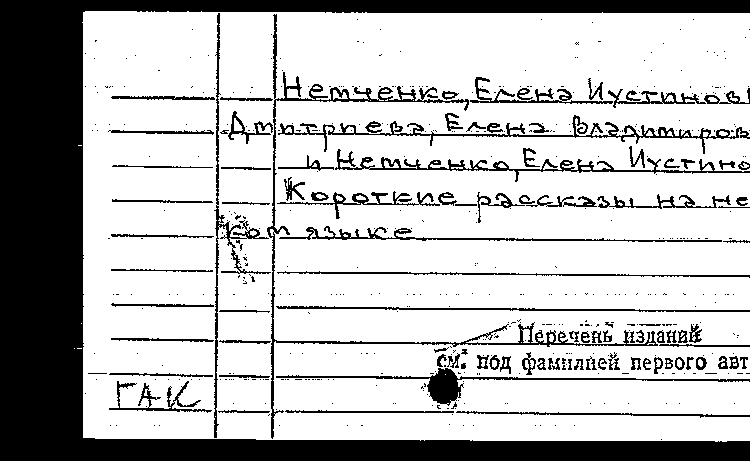 Немченко, Елена Иустинов
Дмитриева, Елена Владимиров
и Немченко, Елена Иустино
Короткие рассказы на не
ком языке
Перечень изданий
см. под фамилией первого авт
ГАК